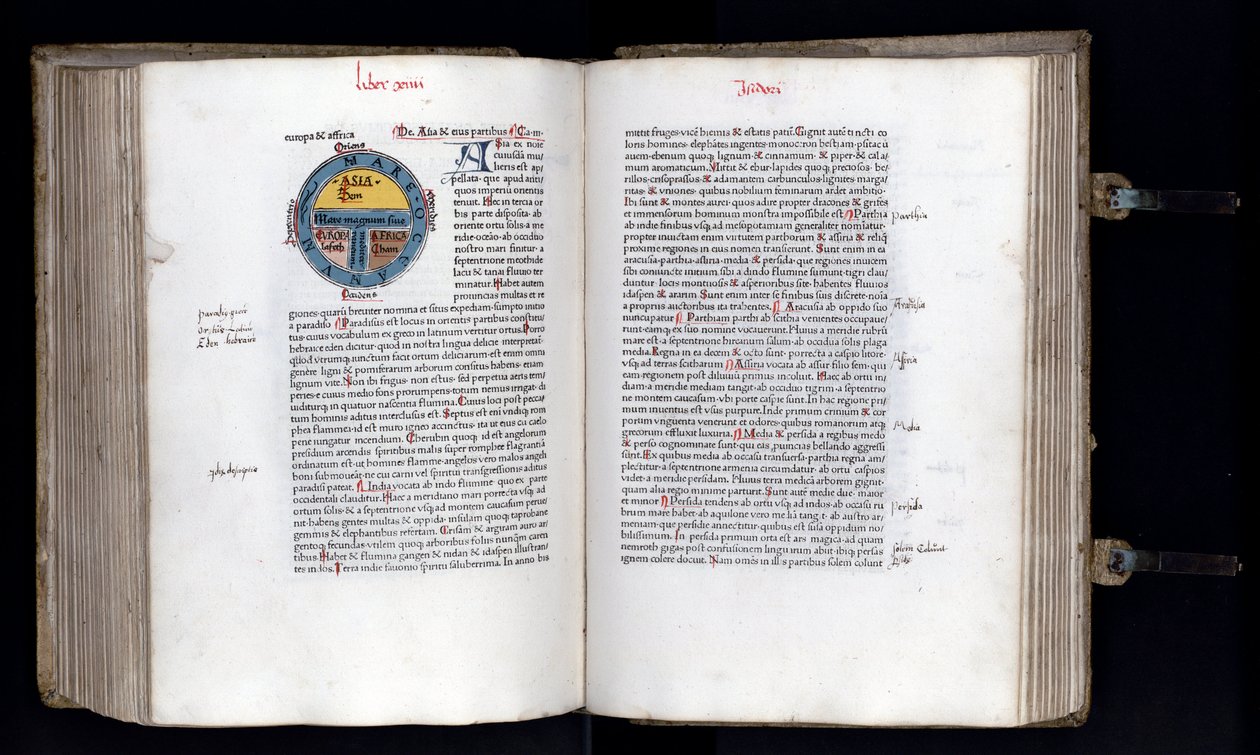 Liber xiiii
europa & affrica
De. Asia & eius partibus Ca·iii·
Oriens
MARE OCCEANUM
ASIA
Sem
Mare magnum siue
mediterraneum
EVROPA
Iafeth
AFRICA
Cham
Septentrio
Meridies
Occidens
ASia ex noie
cuiusdā mu
lieris est ap
pellata· que apud anti
quos imperiū orientis
tenuit. Hec in tercia or
bis parte disposita· ab
oriente ortu solis·a me
ridie·oceāo·ab occiduo
nostro mari finitur·a
septentrione meothide
lacu & tanai fluuio ter
minatur. Habet autem
prouincias multas et re
giones·quarū breuiter nomina et situs expediam·sumpto initio
a paradiso Paradisus est locus in orientis partibus constitu/
tus·cuius vocabulum ex greco in latinum vertitur ortus. Porro
hebraice eden dicitur·quod in nostra lingua delicie interpretat᷑·
quod vtrumq; iunctum facit ortum deliciarum·est enim omni
genere ligni & pomiferarum arborum consitus habens·etiam
lignum vite. Non ibi frigus·non estus· sed perpetua aeris tem/
peries·e cuius medio fons prorumpens·totum nemus irrigat·di
uiditurq; in quatuor nascentia flumina. Cuius loci post pecca/
tum hominis aditus interclusus est. Septus est eni vndiq; rom
phea flammea·id est muro igneo accinctus·ita vt eius cū caelo
pene iungatur incendium. Cherubin quoq; id est angelorum
presidium arcendis spiritibus malis super romphee flagrantiā
ordinatum est·ut homines flamme·angelos vero malos angeli
boni submoueāt·ne cui carni vel spiritui transgressionis aditus
paradisi pateat. India vocata ab indo flumine quo ex parte
occidentali clauditur. Haec a meridiano mari portecta vsq; ad
ortum solis·& a septentrione vsq; ad montem caucasum perue/
nit·habens gentes multas & oppida·insulam quoq; taprobane
gemmis & elephantibus refertam. Crisam & argiram auro ar/
gentoq; fecundas·vtilem quoq; arboribus foliis nunq̄m caren
tibus. Habet & flumina gangen & nidan & idaspen illustran/
tes indos. Terra indie fauonio spiritu saluberrima. In anno bis
Eden hebraice
Isidori
mittit fruges·vicē hiemis & estatis patit᷑. Gignit autē tincti co
loris homines·elephātes ingentes·monoceron bestiam·psitacū
auem·ebenum quoq; lignum·& cinnamum·& piper·& cala/
mum aromaticum. Mittit & ebur·lapides quoq; preciosos·be/
rillos·crisoprassos·& adamantem·carbunculos·lignites·marga/
ritas·& vniones·quibus nobilium feminarum ardet ambitio·
Ibi sunt & montes aurei·quos adire propter dracones & grifes
et immensorum hominum monstra impossibile est Parthia
ab indie finibus vsq; ad mesopotamiam generaliter nomiat᷑ur·
propter inuictam enim virtutem parthorum & assiria & reliq̄
proxime regiones in eius nomen transierunt. Sunt enim in ea
aracusia·parthia·assiria·media·& persida·que regiones inuicem
sibi coniuncte initium sibi a dindo flumine sumunt·tigri clau/
duntur·locis montuosis & asperioribus site·habentes fluuios
idaspen & ararim Sunt enim inter se finibus suis discrete·noīa
a propriis auctoribus ita trahentes. Aracusia ab oppido suo
nuncupatur Parthiam parthi ab scithia venientes occupaue/
runt·eamq; ex suo nomine vocauerunt. Huius a meridie rubrū
mare est·a septentrione hircanum salum·ab occidua solis plaga
media. Regna in ea decem & octo sunt·porrecta a caspio litore·
vsq; ad terras scitharum Assiria vocata ab assur filio sem·qui
eam regionem post diluuiū primus incoluit. Haec ab ortu in/
diam·a meridie mediam tangit·ab occiduo tigrim·a septentrio
ne montem caucasum·vbi porte caspie sunt. In hac regione pri/
mum inuentus est vsus purpure. Inde primum crinium & cor
porum vnguenta venerunt et odores·quibus romanorum atq;
grecorum effluxit luxuria. Media & persida a regibus medo
& perso cognominate sunt·qui eas puincias bellando aggressi
sunt. Ex quibus media ab occasu transuersa·parthia regna am/
plectitur·a septentrione armenia circumdatur·ab ortu caspios
videt·a meridie persidam. Huius terra medicā arborem gignit·
quam alia regio minime parturit. Sunt autē medie due·maior
et minor Persida tendens ab ortu vsq; ad indos·ab occasu ru
brum mare habet·ab aquilone vero mediā tangit·ab austro ar/
meniam·que persidie annectitur·quibus est susa oppidum no/
bilissimum. In persida primum orta est ars magica·ad quam
nemroth gigas post confusionem linguarum abiit·ibiq; persas
ignem colere docuit. Nam omēs in illis partibus solem colunt
Parthia
Aracusia
Assiria
Media
Persida
solem Colunt
Perside